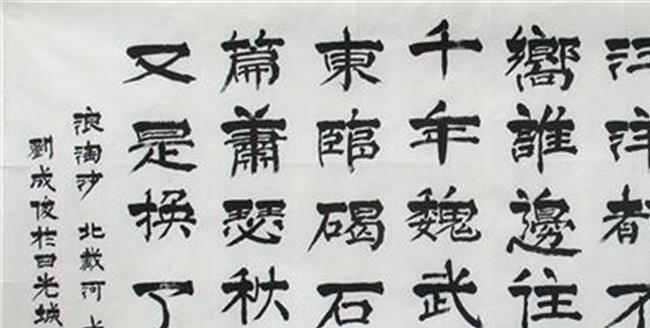 汪洋都不
嚮誰邊往
千年魏武
東臨碣石
篇蕭瑟秋
又是换了
浪淘沙 北戴河
劉成俊於日光城